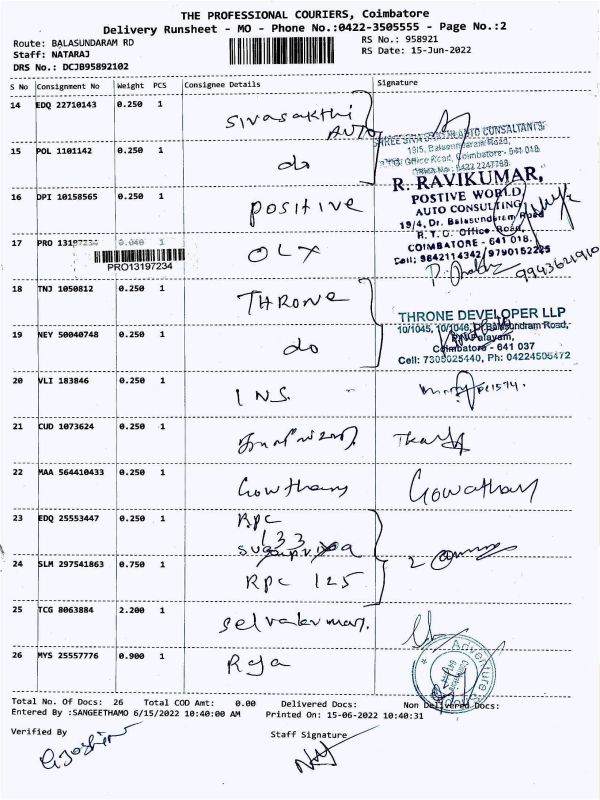 THE PROFESSIONAL COURIERS, Coimbatore
Delivery Runsheet - MO - Phone No.:0422-3505555 - Page No.:2
Route: BALASUNDARAM RD
RS No.: 958921
Staff: NATARAJ
RS Date: 15-Jun-2022
DRS No.: DCJB95892102
S No Consignment No Weight PCS Consignee Details Signature
14 EDQ 22710143 0.250 1 Sivasakthi
AUTO
SHREE SIVA SAKTHI AUTO CONSULTANTS
15 POL 1101142 0.250 1 do
R. RAVIKUMAR,
16 DPI 10158565 0.250 1 positive
POSTIVE WORLD
AUTO CONSULTING
19/4, Dr. Balasundaram Road
R. T. O. Office Road,
COIMBATORE - 641 018.
Cell; 9842114342/9790152225
17 PRO 13197234 0.040 1 OLX
PRO13197234
9943621910
18 TNJ 1050812 0.250 1 THRONE
THRONE DEVELOPER LLP
10/1045, 10/1046, Dr.Balasundram Road,
19 NEY 50040748 0.250 1 do
Coimbatore - 641 037
Cell: 7305025440, Ph: 04224506472
20 VLI 183846 0.250 1 INS.
21 CUD 1073624 0.250 1
22 MAA 564410433 0.250 1 Gowtham Gowtham
23 EDQ 25553447 0.250 1 Rpc
133
24 SLM 297541863 0.750 1 Rpc 125
25 TCG 8063884 2.200 1 Selvakumar.
26 MYS 25557776 0.900 1 Raja
Adventure
Total No. Of Docs: 26 Total COD Amt: 0.00 Delivered Docs: Non Delivered Docs:
Entered By :SANGEETHAMO 6/15/2022 10:40:00 AM Printed On: 15-06-2022 10:40:31
Verified By Staff Signature